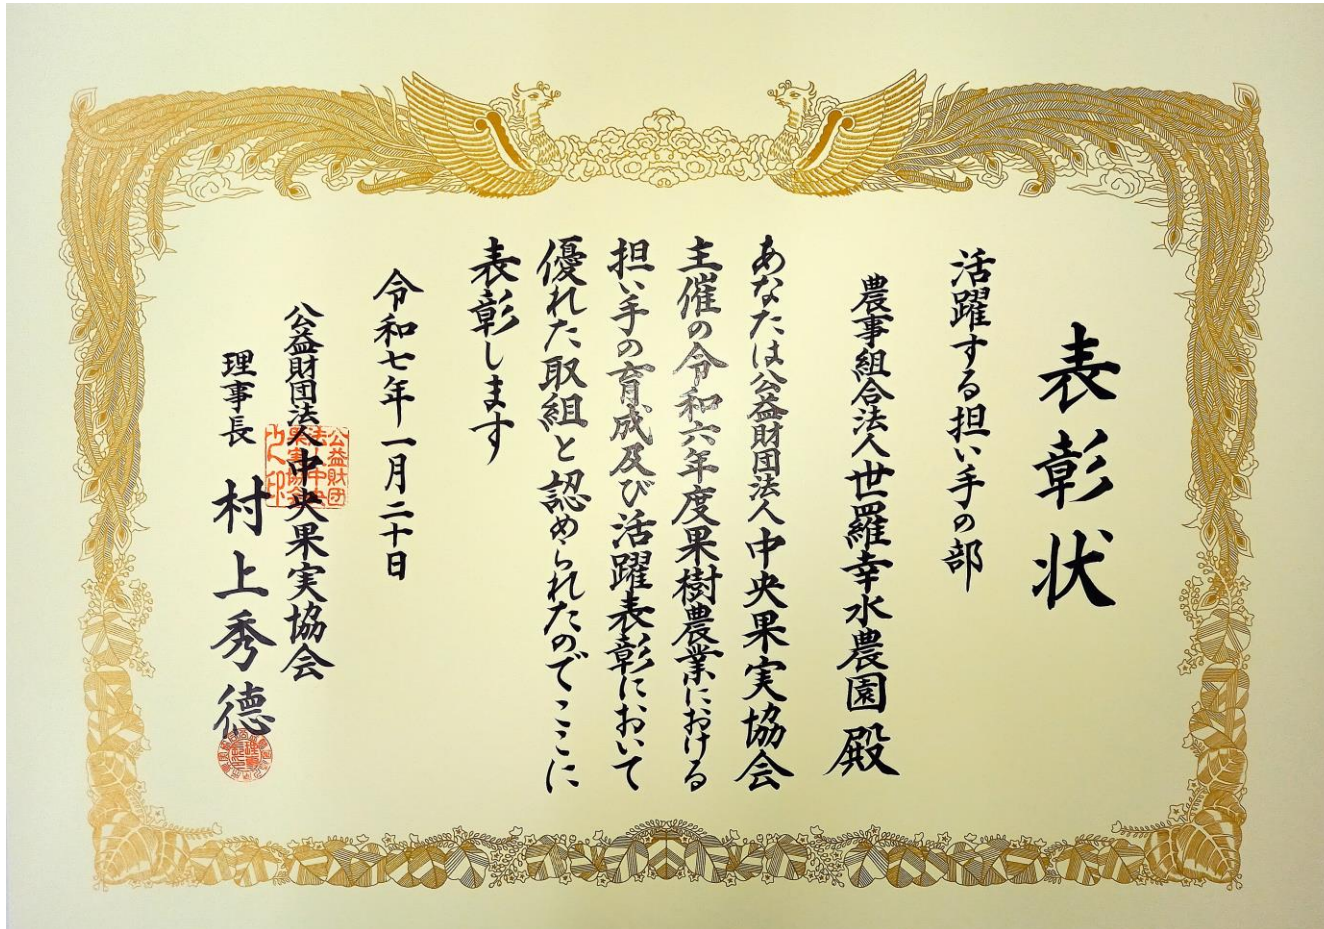 表彰状
活躍する担い手の部
農事組合法人世羅幸水農園 殿
あなたは公益財団法人中央果実協会
主催の令和六年度果樹農業における
担い手の育成及び活躍表彰において
優れた取組と認められたのでここに
表彰します
令和七年一月二十日
公益財団法人中央果実協会
理事長 村上秀德